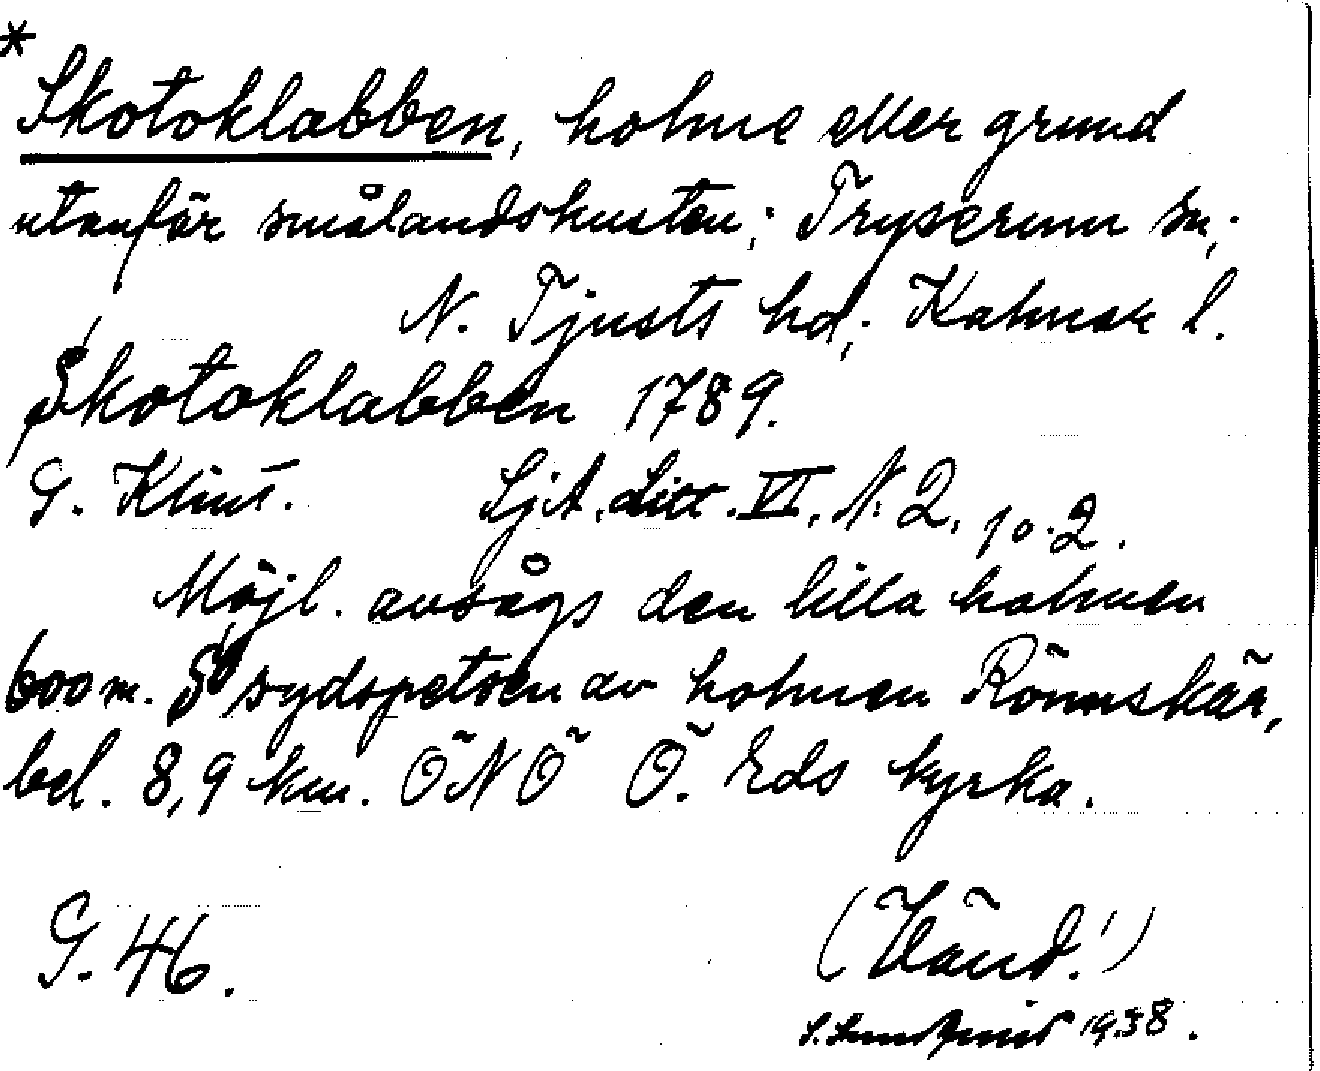 *
Skotoklabben, holme eller grund
utanför smålandskusten; Tryserum sn;
N. Tjusts hd; Kalmar l.
Skotoklabben 1789.
G. Klint. SjA. Litt. VI, N. 2, 10.2.
Möjl. avsågs den lilla holmen
600 m. S sydspetsen av holmen Rönnskär,
bel. 8,9 km. ÖNÖ Ö. Eds kyrka.
G. 46. (Vänd!)
1938.